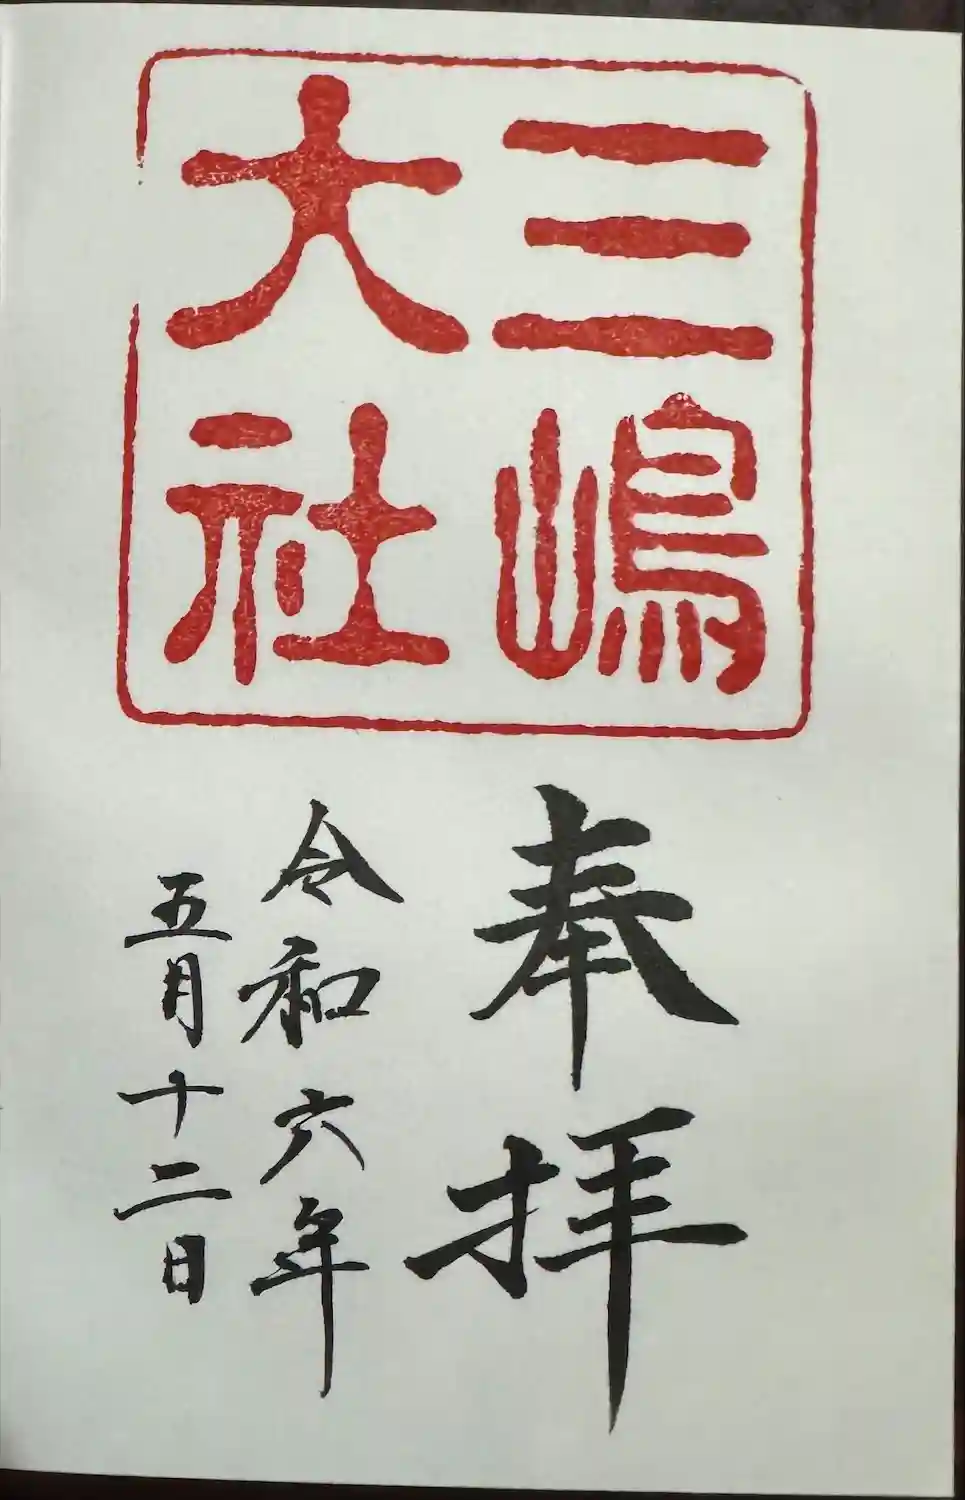 三嶋
大社
奉拝
令和六年
五月十二日